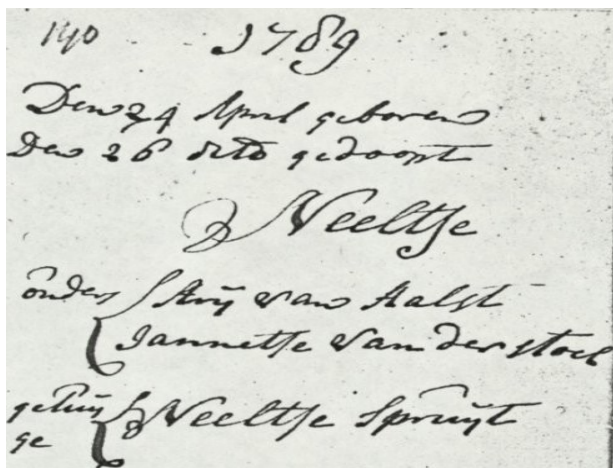 140 1789
Den 24 April geboren
Den 26 dito gedoopt
Neeltje
ouders Arij van Aalst
Jannetje van der stoel
getuij Neeltje Spruijt
ge